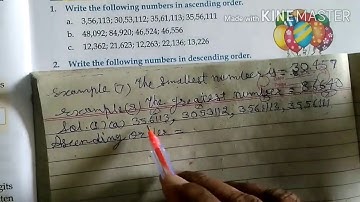 1. Write the following numbers in ascending order.
Made with KINEMASTER
a. 3,56,113; 30,53,112; 35,61,113; 35,56,111
b. 48,092; 84,920; 46,524; 46,556
c. 12,362; 21,623; 12,263; 22,136; 13,226
2. Write the following numbers in descending order.
Example (7) The smallest number is = 30,457
Example(8) The greatest number =
Sol. (1) (a) 356113, 3053112, 3561113, 3556111
Ascending order =
gits